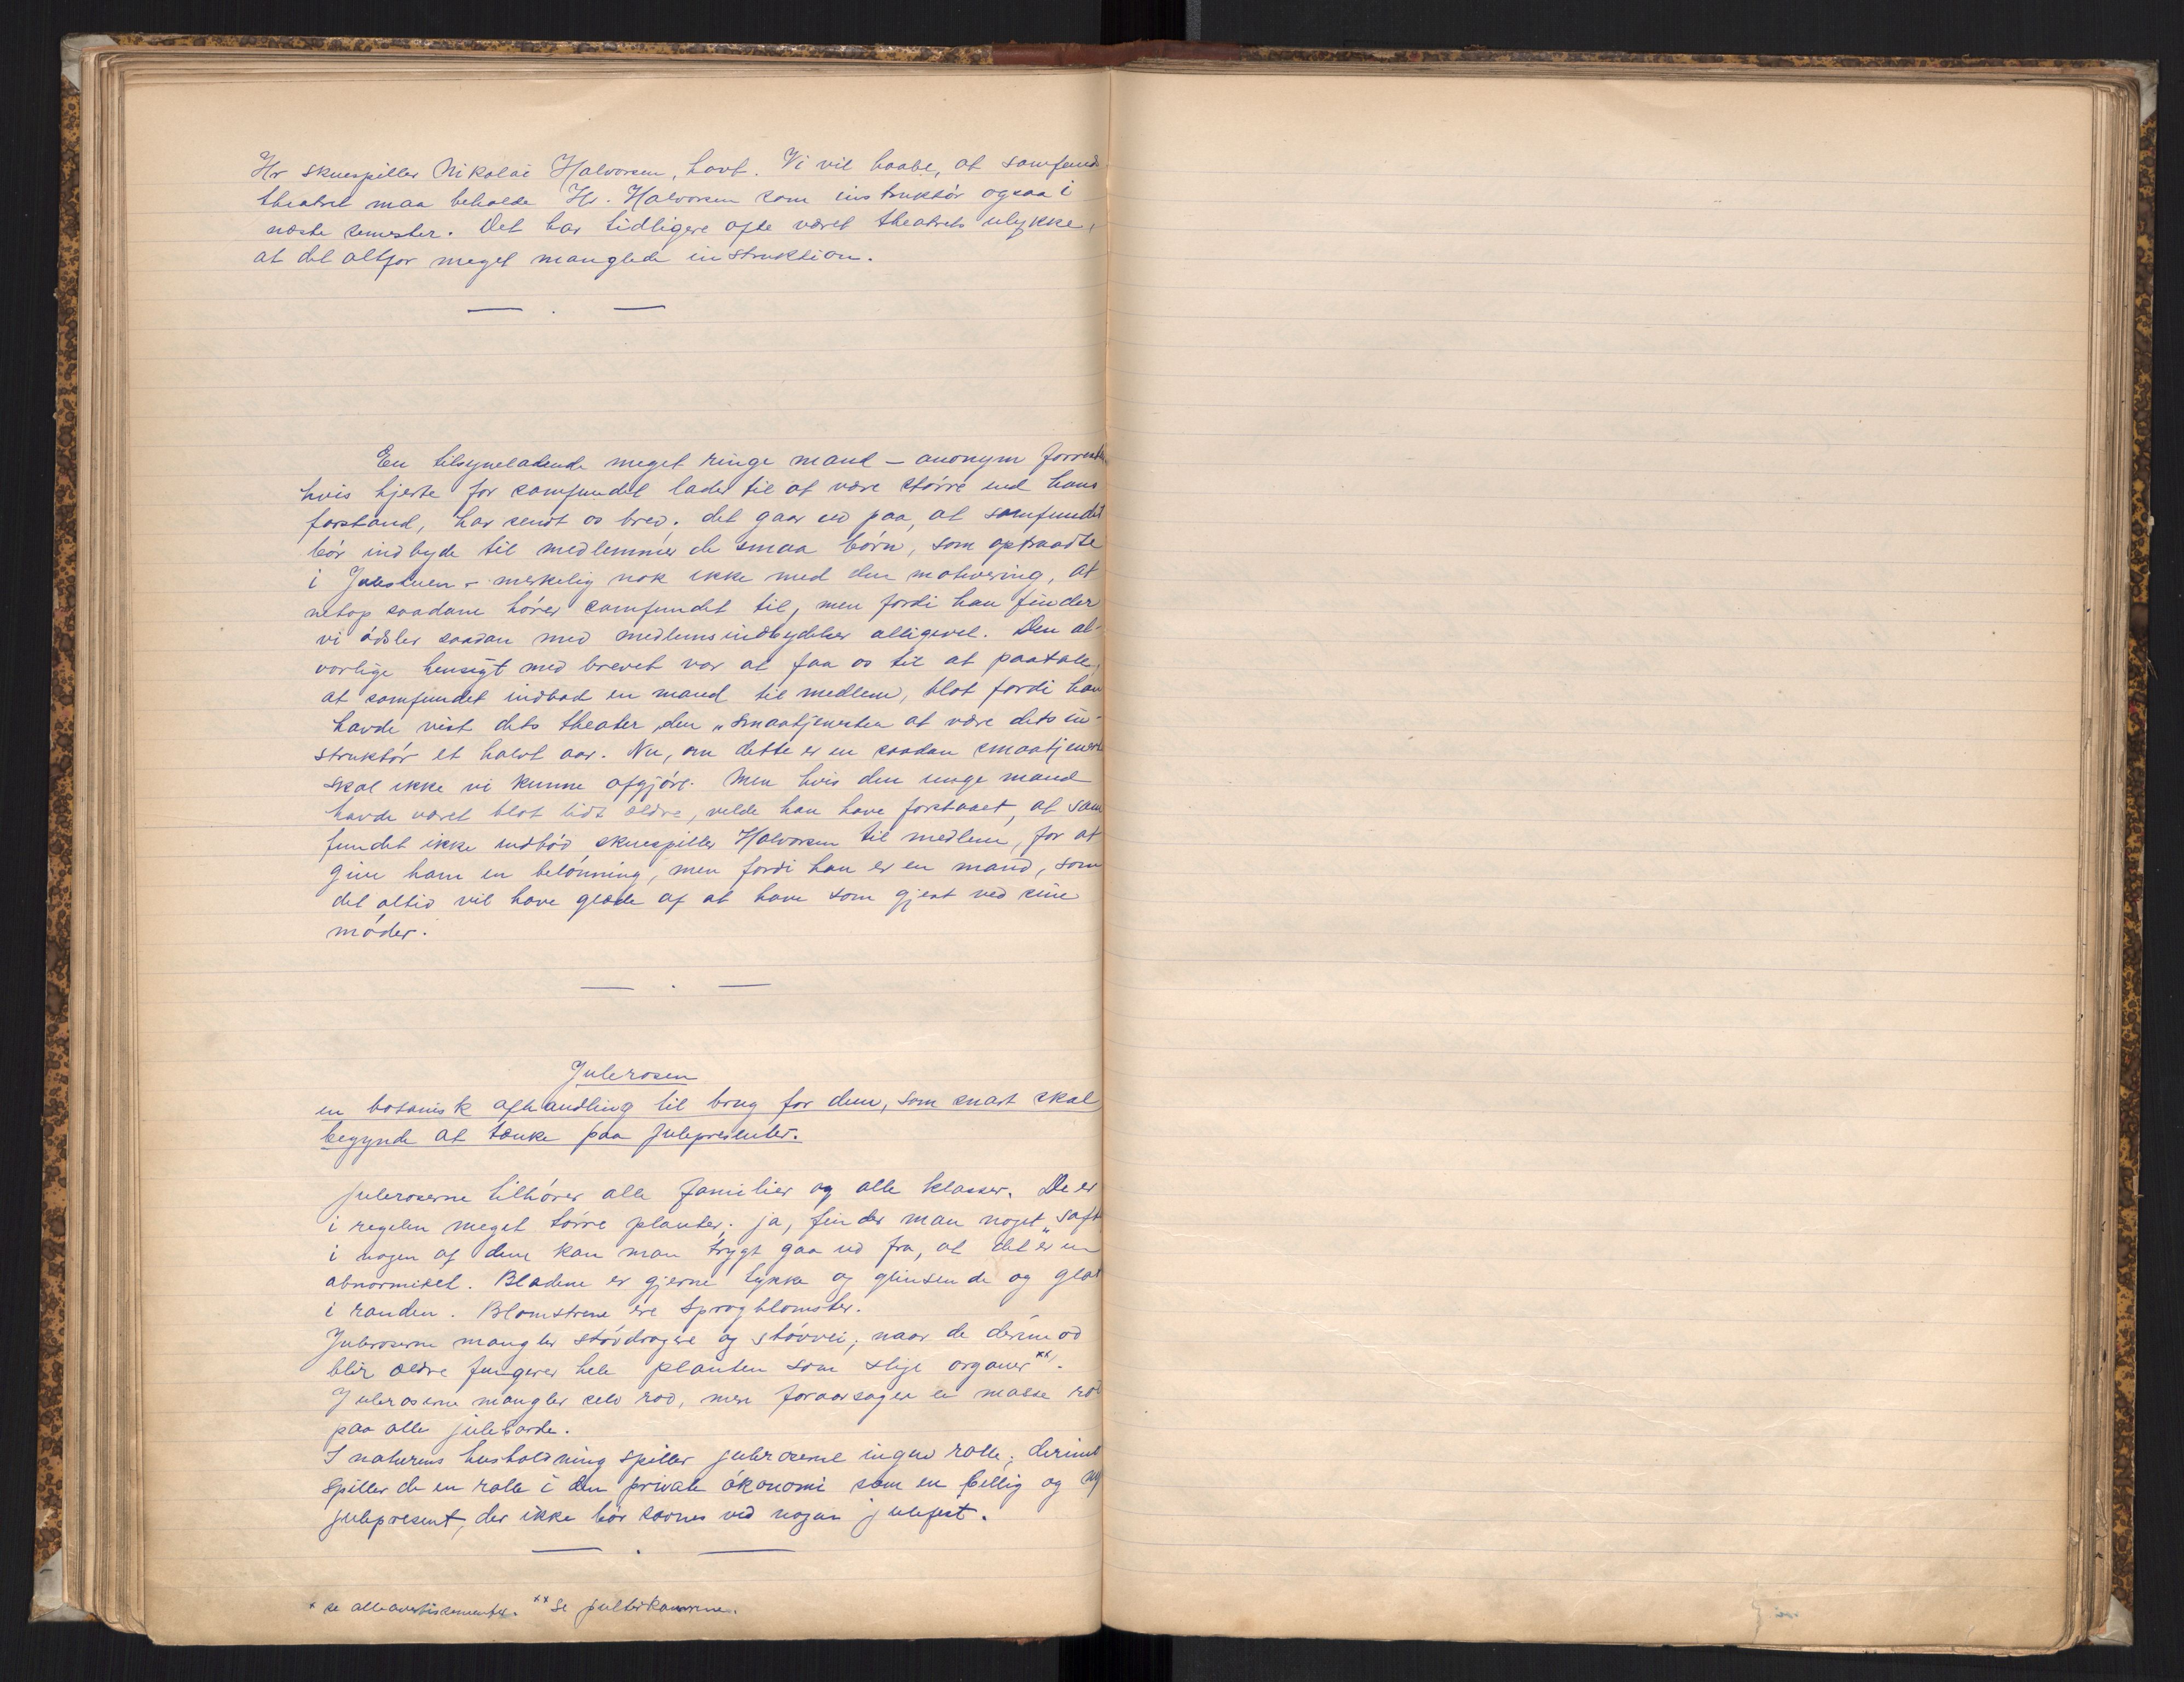 Hr skuespiller Nikolai Halvorsen, havt. Vi vil haabe, at samfunds
theatret maa beholde Hr. Halvorsen som instruktör ogsaa i
næste semester. Det har tidligere ofte været theatrets ulykke,
at det altfor meget manglede instruktion.
— . —
En tilsyneladende meget ringe mand – anonym forresten
hvis hjerte for samfundet lader til at være större end hans
forstand, har sendt os brev. det gaar ud paa, at samfundet
bör indbyde til medlemmer de smaa börn, som optraadte
i Julestuen – merkelig nok ikke med den motivering, at
netop saadane hörer samfundet til, men fordi han finder
vi ödsler saadan med medlemsindbydelser alligevel. Den al-
vorlige hensigt med brevet var at faa os til at paatale,
at samfundet indbød en mand til medlem, blot fordi han
havde vist dets theater den „smaatjeneste" at være dets in-
struktör et halvt aar. Nu, om dette er en saadan smaatjeneste
skal ikke vi kunne afgjöre. Men hvis den unge mand
havde været blot lidt ældre, vilde han have forstaaet, at sam
fundet ikke indböd skuespiller Halvorsen til medlem, for at
give ham en belönning, men fordi han er en mand, som
det altid vil have glæde af at have som gjest ved sine
möder.
— . —
Julerosen
en botanisk afhandling til brug for dem, som snart skal
begynde at tænke paa julepresenter.
Juleroserne tilhörer alle familier og alle klasser. De er
i regelen meget törre planter; ja, finder man noget „saft"
i nogen af dem kan man trygt gaa ud fra, at det er en
abnormitet. Bladene er gjerne tykke og glinsende og glat
i randen. Blomstrene ere sprogblomster.
Juleroserne mangler stövdragere og stövvei; naar de derimod
blir ældre fungerer hele planten som slige organer **.
Juleroserne mangler selv rod, men foraarsager en masse rod
paa alle juleborde.
I naturens husholdning spiller juleroserne ingen rolle; derimod
spiller de en rolle i den private ökonomi som en billig og
julepresent, der ikke bör savnes ved nogen julefest.
— . —
* se alle avertissementer. ** Se pulterkamrene.